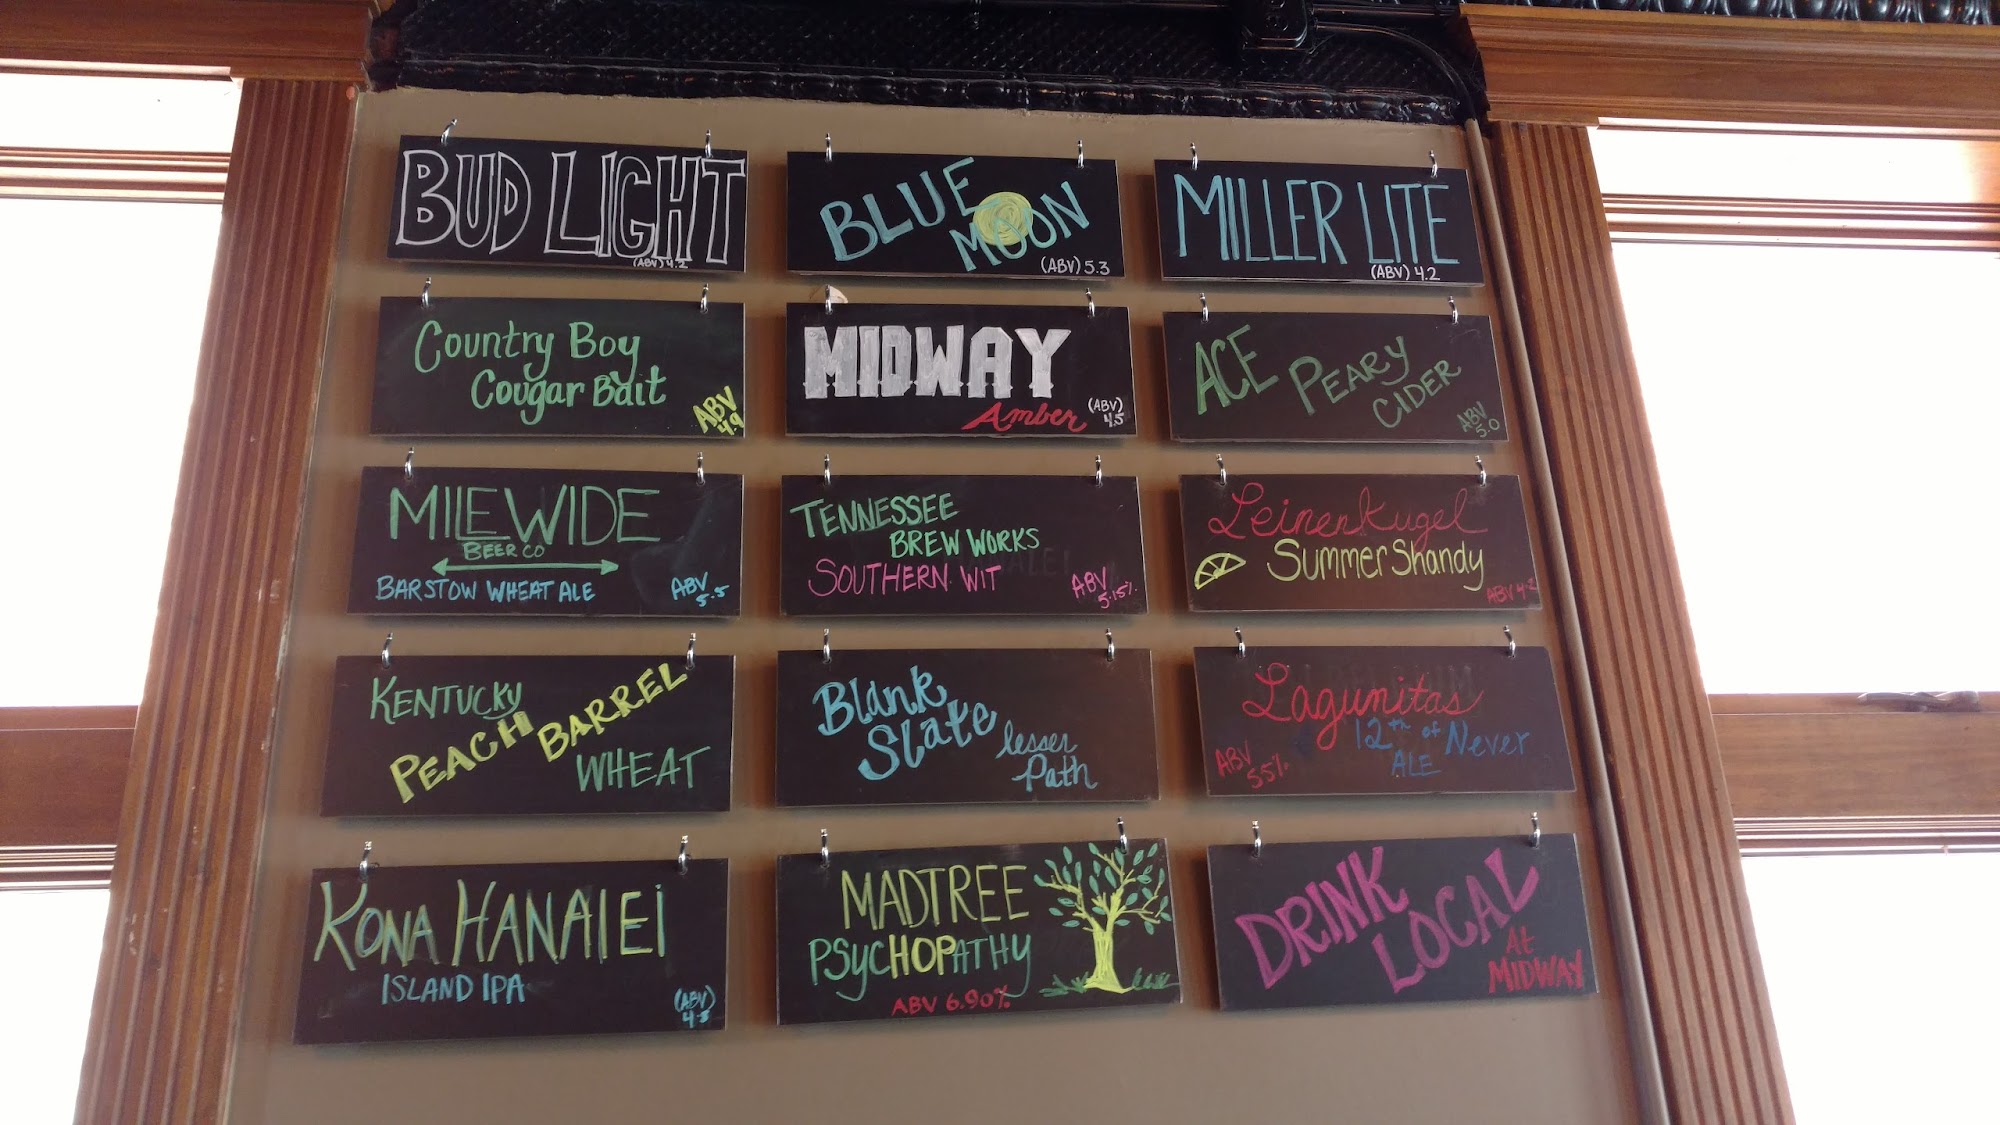 BUD LIGHT
(ABV) 4.2
BLUE
MOON
(ABV) 5.3
MILLER LITE
(ABV) 4.2
Country Boy
Cougar Bait
ABV
4.9
MIDWAY
Amber
(ABV)
4.5
ACE
PEARY
CIDER
ABV
5.0
MILEWIDE
BEER CO
BARSTOW WHEAT ALE
ABV
5.5
TENNESSEE
BREW WORKS
SOUTHERN WIT
ABV
5.15%
Leinenkugel
Summer Shandy
ABV 4.2
KENTUCKY
PEACH BARREL
WHEAT
Blank
Slate
lesser
Path
Lagunitas
12th of Never
ALE
ABV
5.5%
KONA HANALEI
ISLAND IPA
(ABV)
4.5
MADTREE
PSYCHOPATHY
ABV 6.90%
DRINK
LOCAL
At
MIDWAY